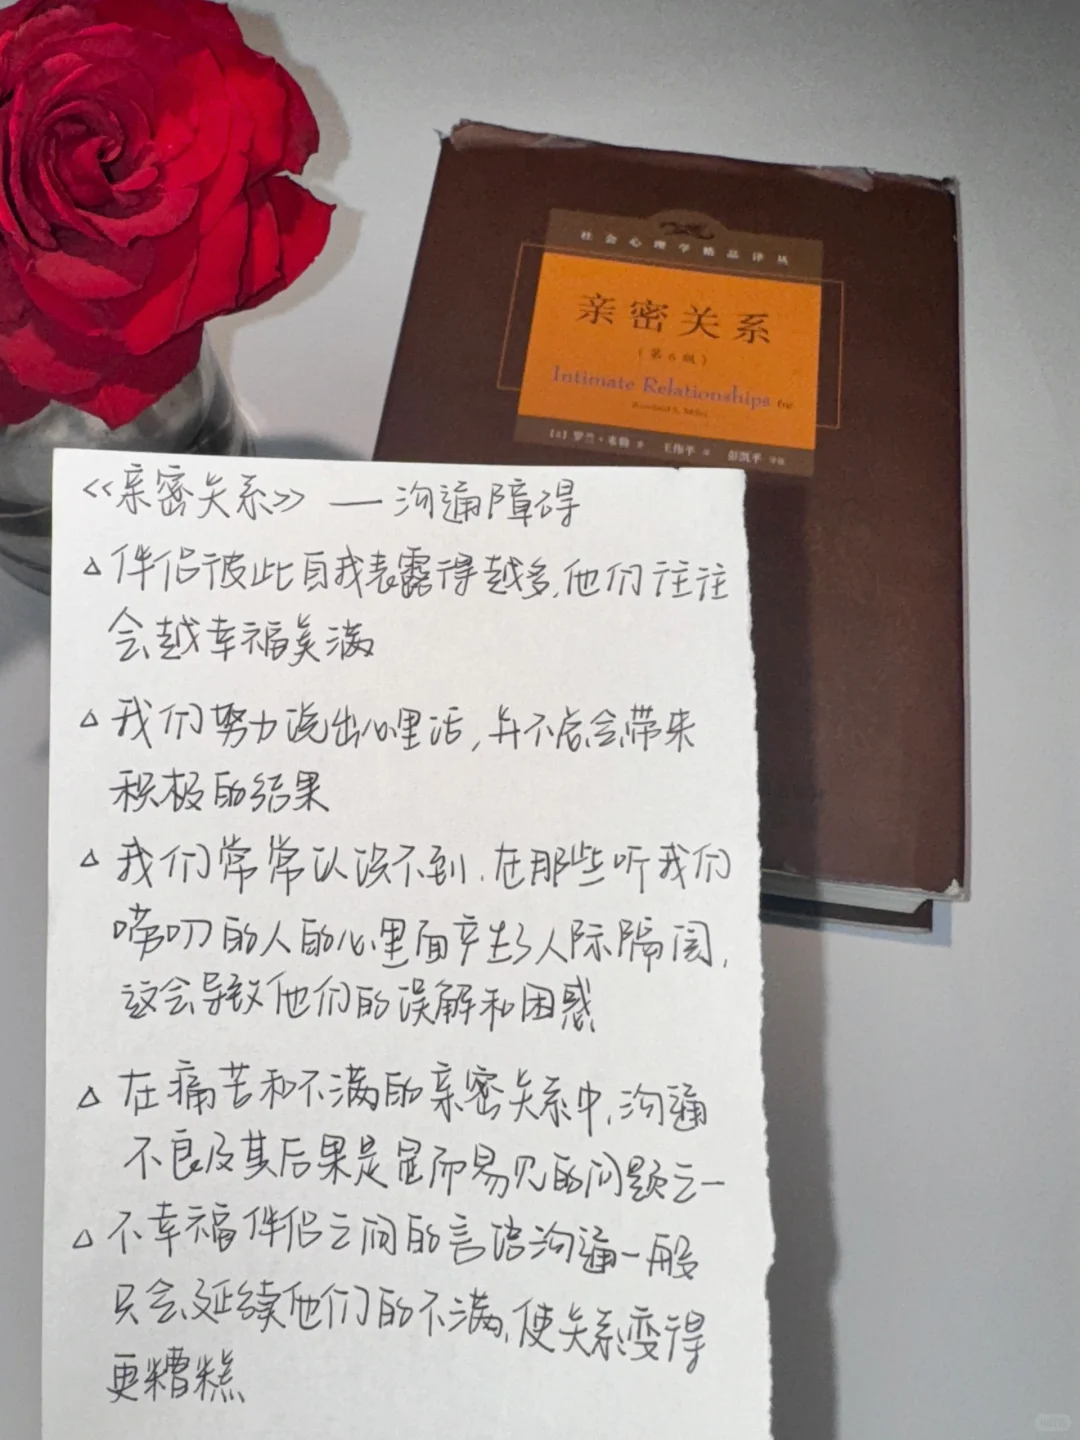 社会心理学精品译丛
亲密关系
(第6版)
Intimate Relationships by
Rowland S. Miller
[美] 罗兰·米勒 著 王伟平 译 彭凯平 审校
《亲密关系》—沟通障碍
△ 伴侣彼此自我表露得越多,他们往往
会越幸福美满
△ 我们努力说出心里话,并不总会带来
积极的结果
△ 我们常常认识不到,在那些听我们
唠叨的人的心里面产生了人际隔阂,
这会导致他们的误解和困惑
△ 在痛苦和不满的亲密关系中,沟通
不良及其后果是显而易见的问题之一
△ 不幸福伴侣之间的言语沟通一般
只会延续他们的不满,使关系变得
更糟糕